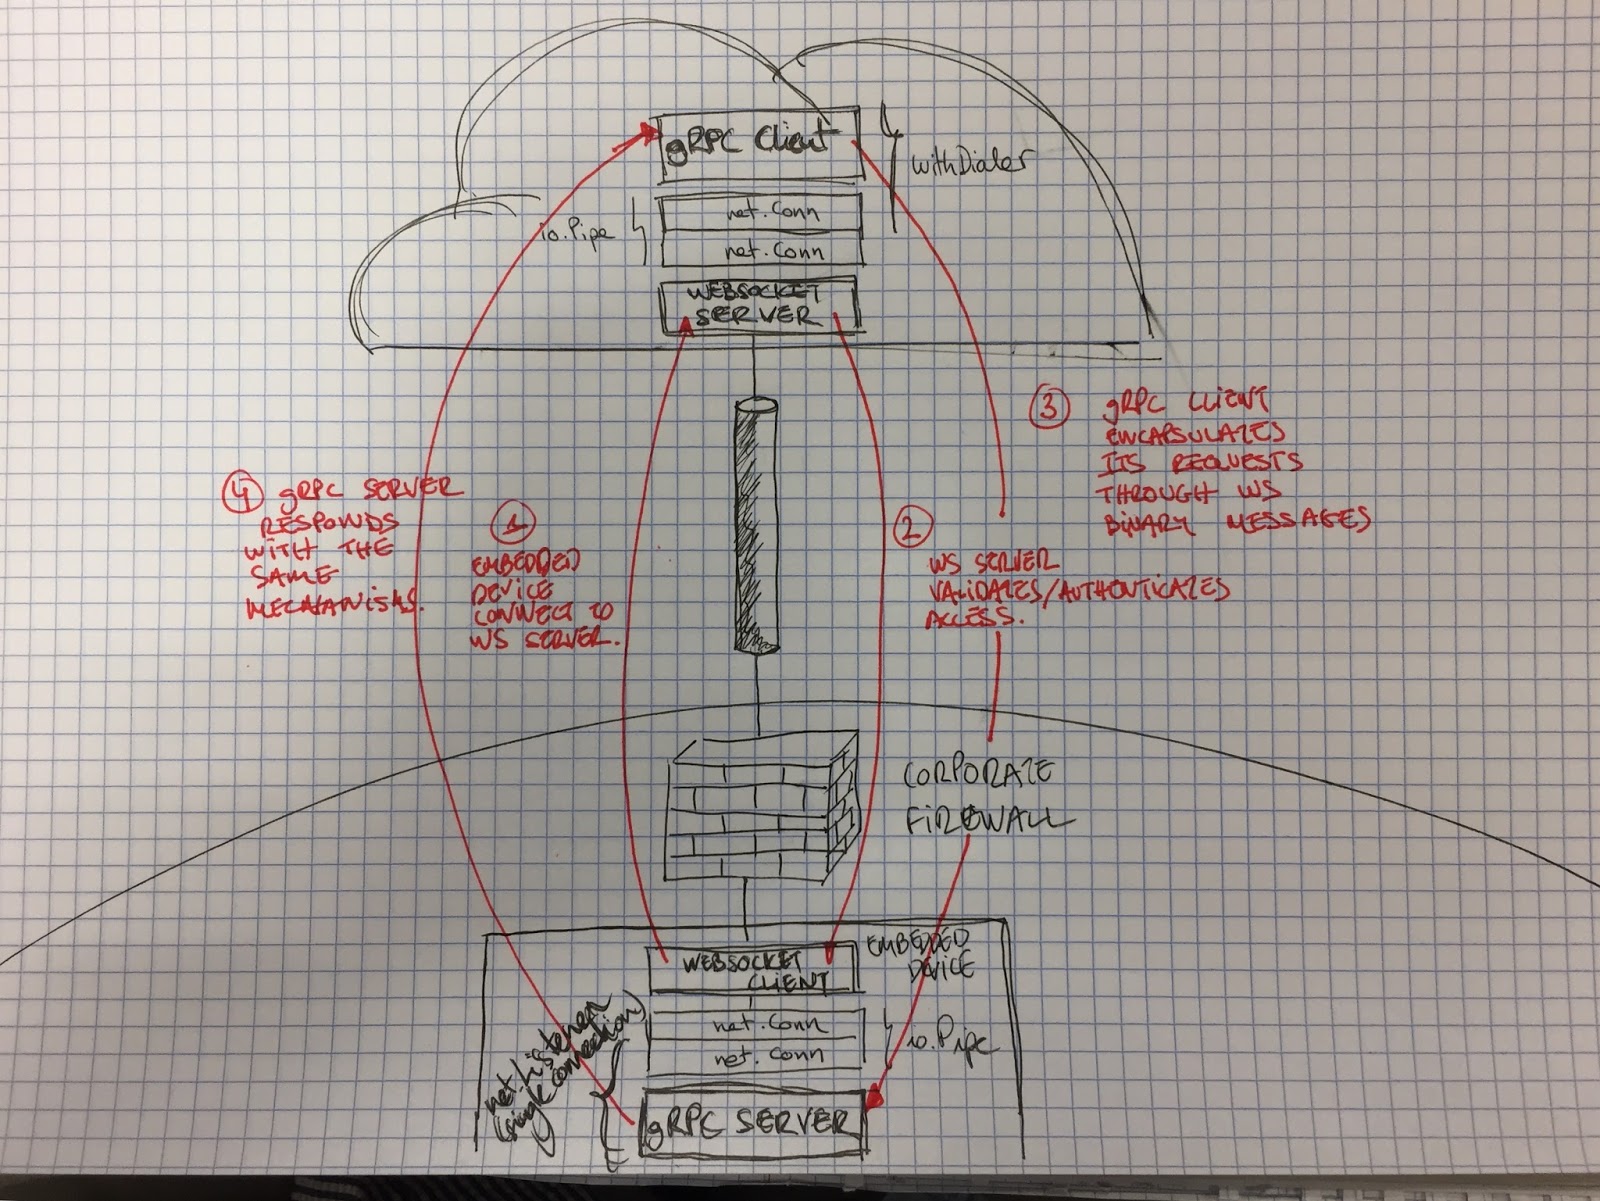 gRPC Client
withDialer
net.Conn
io.Pipe
net.Conn
WEBSOCKET
SERVER
3 gRPC CLIENT
ENCAPSULATES
ITS REQUESTS
THROUGH WS
BINARY MESSAGES
4 gRPC SERVER
RESPONDS
WITH THE
SAME
MECHANISMS.
1
EMBEDDED
DEVICE
CONNECT TO
WS SERVER.
2
WS SERVER
VALIDATES/AUTHENTICATES
ACCESS.
CORPORATE
FIREWALL
EMBEDDED
DEVICE
WEBSOCKET
CLIENT
net.Conn
net.Conn
io.Pipe
net.Listener
(single connection)
gRPC SERVER